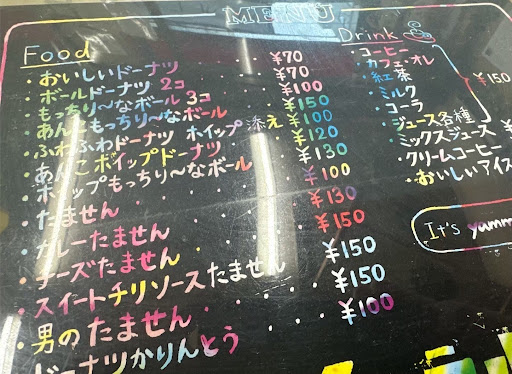 MENU
Food
・おいしいドーナツ ¥70
・ボールドーナツ 2コ ¥70
・もっちり〜なボール 3コ ¥100
・あんこもっちり〜なボール ¥150
・ふわふわドーナツ ホイップ添え ¥100
・あんこホイップドーナツ ¥120
・ホイップもっちり〜なボール ¥130
・たません ¥100
・カレーたません ¥130
・チーズたません ¥150
・スイートチリソースたません ¥150
・男のたません ¥150
ドーナツかりんとう ¥100
Drink
・コーヒー
・カフェ・オレ
・紅茶
・ミルク
・コーラ
・ジュース各種
¥150
・ミックスジュース ¥
・クリームコーヒー
・おいしいアイス
It's yumm